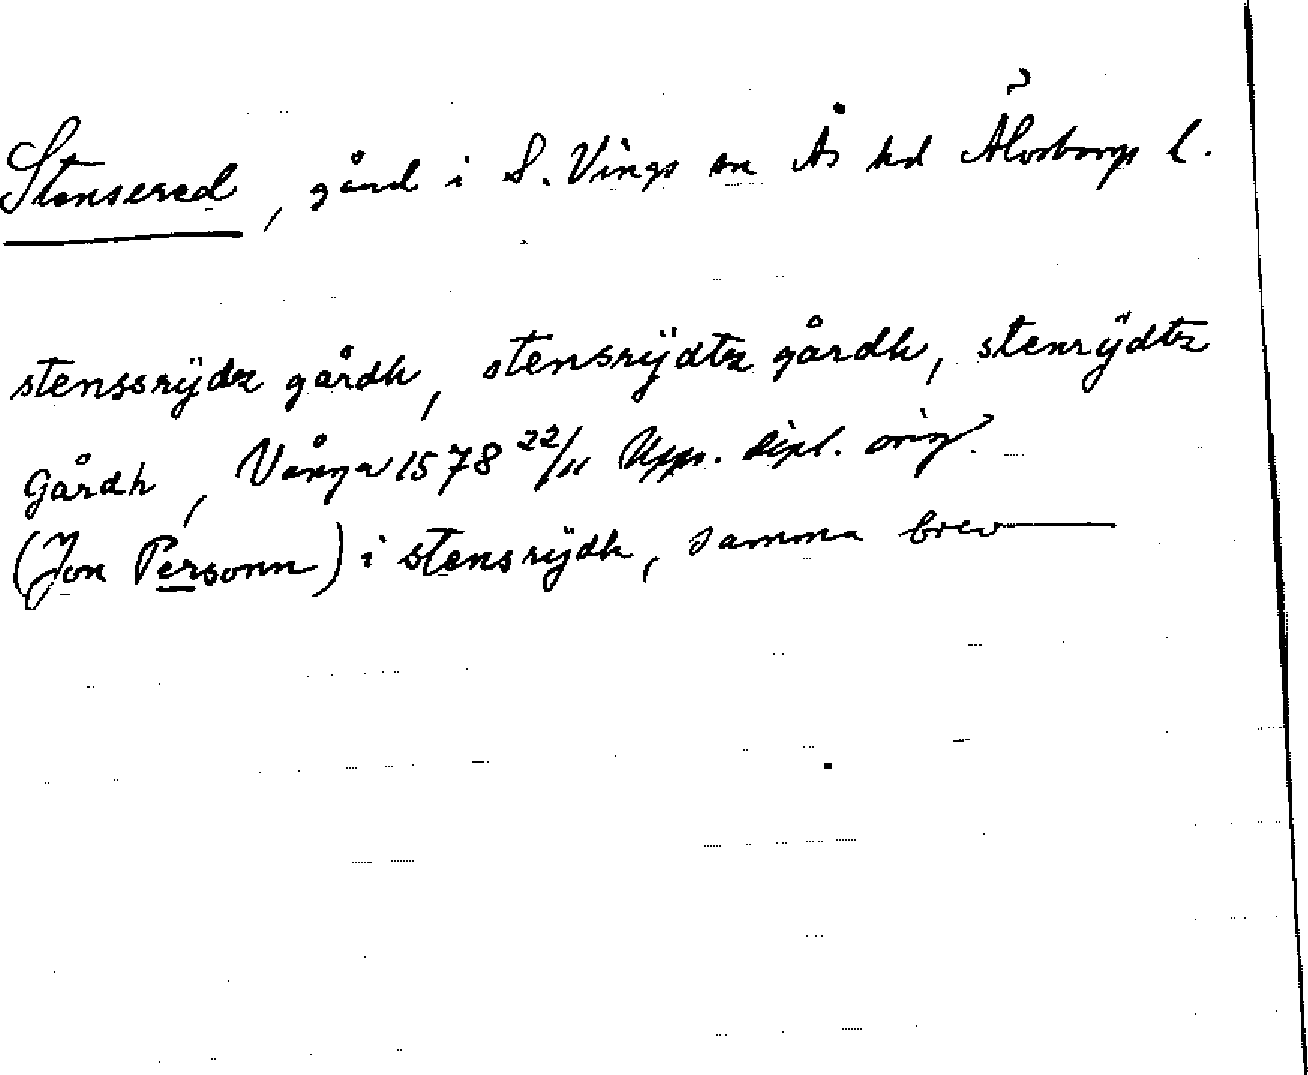 Stensered, gård i S. Vings sn Ås hd Älvsborgs l.
stenssrÿdz gårdh, stensrÿdtz gårdh, stenrÿdtz
Gårdh, Vånga 1578 22/11 Upps. dipl. orig.
(Jon Personn) i stensrÿdh, samma brev